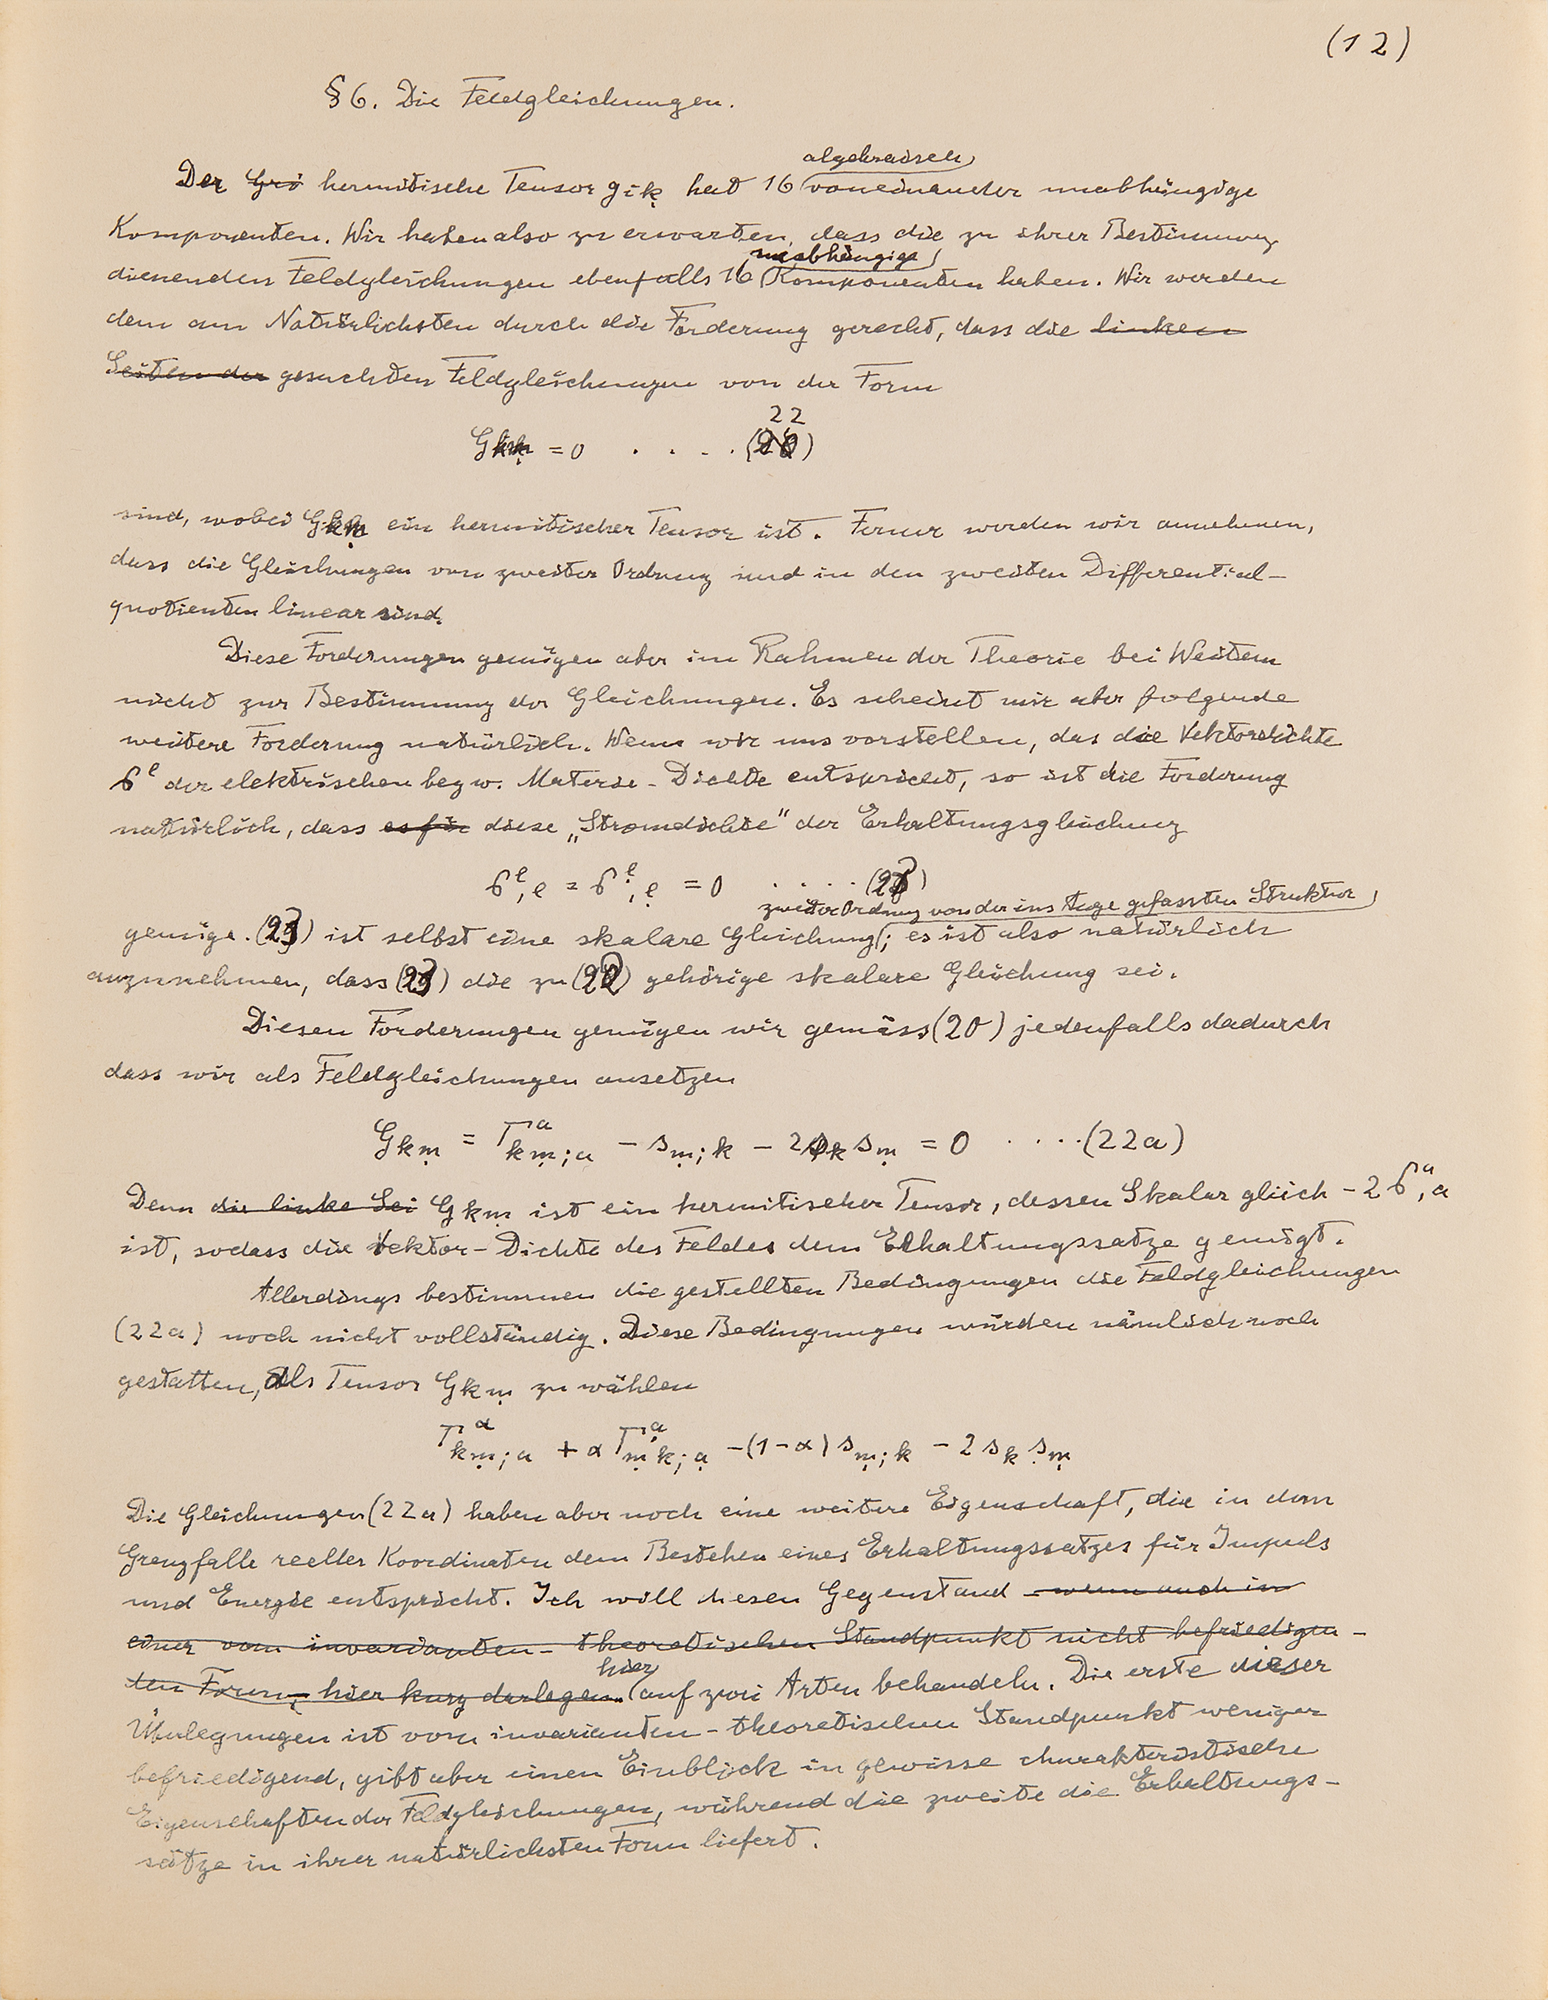 (12)
§ 6. Die Feldgleichungen.
algebraisch
Der Grö hermitische Tensor giḳ hat 16 voneinander unabhängige
Komponenten. Wir haben also zu erwarten, dass die zu ihrer Bestimmung
unabhängige
dienenden Feldgleichungen ebenfalls 16 Komponenten haben. Wir werden
dem am Natürlichsten durch die Forderung gerecht, dass die linken
Seiten der gesuchten Feldgleichungen von der Form
22
G = 0 . . . .
sind, wobei G ein hermitischer Tensor ist. Ferner werden wir annehmen,
dass die Gleichungen von zweiter Ordnung und in den zweiten Differential-
quotienten linear sind.
Diese Forderungen genügen aber im Rahmen der Theorie bei Weitem
nicht zur Bestimmung der Gleichungen. Es scheint mir aber folgende
weitere Forderung natürlich. Wenn wir uns vorstellen, das die Vektordichte
der elektrischen bezw. Materie-Dichte entspricht, so ist die Forderung
natürlich, dass es für diese „Stromdichte" der Erhaltungsgleichung
𝔰^l_,l = 𝔰^ḷ_,ḷ = 0 . . . . (23)
zweiter Ordnung von der ins Auge gefassten Struktur
genüge. (23) ist selbst eine skalare Gleichung; es ist also natürlich
anzunehmen, dass (23) die zu (22) gehörige skalare Gleichung sei.
Diesen Forderungen genügen wir gemäss (20) jedenfalls dadurch
dass wir als Feldgleichungen ansetzen
G_kṃ = Γ^a_kṃ;a − s_ṃ;k − 2 s_k s_ṃ = 0 . . . . (22a)
Denn die linke Sei G_kṃ ist ein hermitischer Tensor, dessen Skalar gleich − 2 𝔰^a_,a
ist, sodass die Vektor-Dichte des Feldes dem Erhaltungssatze genügt.
Allerdings bestimmen die gestellten Bedingungen die Feldgleichungen
(22a) noch nicht vollständig. Diese Bedingungen würden nämlich noch
gestatten, als Tensor G_kṃ zu wählen
Γ^a_kṃ;a + α Γ^ạ_ṃk;ạ − (1−α) s_ṃ;k − 2 s_k s_ṃ
Die Gleichungen (22a) haben aber noch eine weitere Eigenschaft, die in dem
Grenzfalle reeller Koordinaten dem Bestehen eines Erhaltungssatzes für Impuls
und Energie entspricht. Ich will diesen Gegenstand – wenn auch in
einer vom invarianten-theoretischen Standpunkt nicht befriedigen-
hier
den Form – hier kurz darlegen. auf zwei Arten behandeln. Die erste dieser
Überlegungen ist vom invarianten-theoretischen Standpunkt weniger
befriedigend, gibt aber einen Einblick in gewisse charakteristische
Eigenschaften der Feldgleichungen, während die zweite die Erhaltungs-
sätze in ihrer natürlichsten Form liefert.